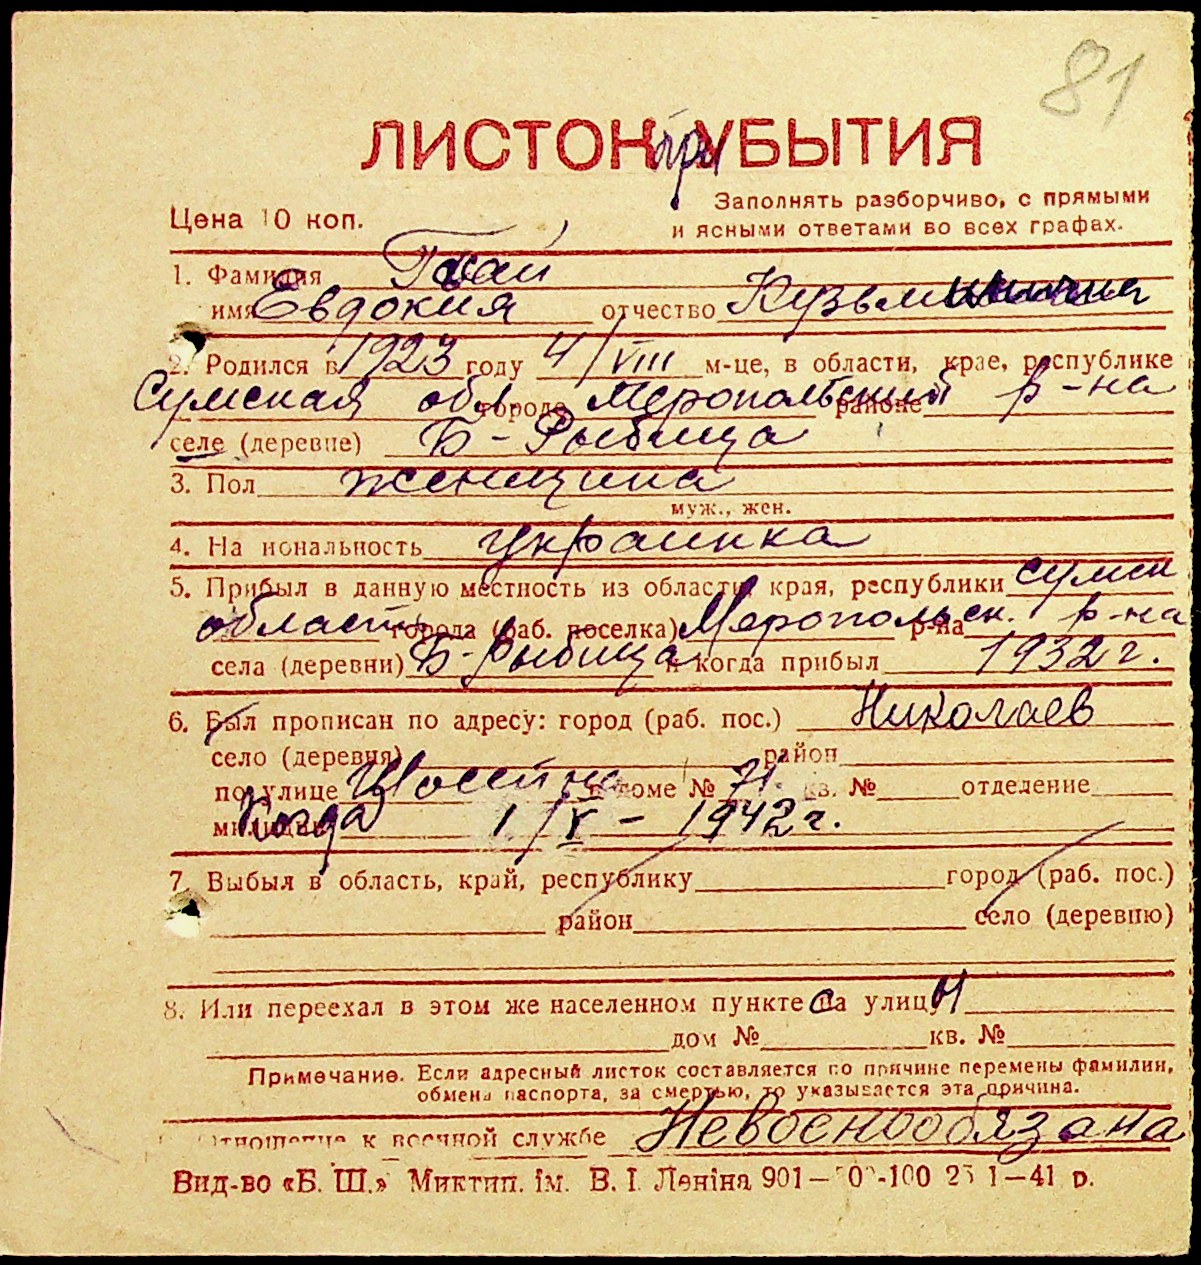 81
ЛИСТОК при УБЫТИЯ
Заполнять разборчиво, с прямыми
Цена 10 коп.
и ясными ответами во всех графах.
1. Фамилия Гай
имя Евдокия отчество Кузьминична
2. Родился в 1923 году 4/VIII м-це, в области, крае, республике
Сумская обл городе Меропольский районе р-на
селе (деревне) Б-Рыбица
3. Пол женщина
муж., жен.
4. На иональность украинка
5. Прибыл в данную местность из области, края, республики сумск
области города (раб. поселка) Меропольск. р-на р-на
села (деревни) Б-Рыбица и когда прибыл 1932 г.
6. Был прописан по адресу: город (раб. пос.) Николаев
село (деревня) район
по улице Шосейна в доме № 71. кв. № отделение
милиции Когда 1/V - 1942 г.
7. Выбыл в область, край, республику город (раб. пос.)
район село (деревню)
8. Или переехал в этом же населенном пункте с на улицы
дом № кв. №
Примечание. Если адресный листок составляется по причине перемены фамилии,
обмена паспорта, за смертью, то указывается эта причина.
Отношение к военной службе Невоеннообязана
Вид-во «Б. Ш.» Миктип. ім. В. І. Леніна 901— -100 25 1—41 р.